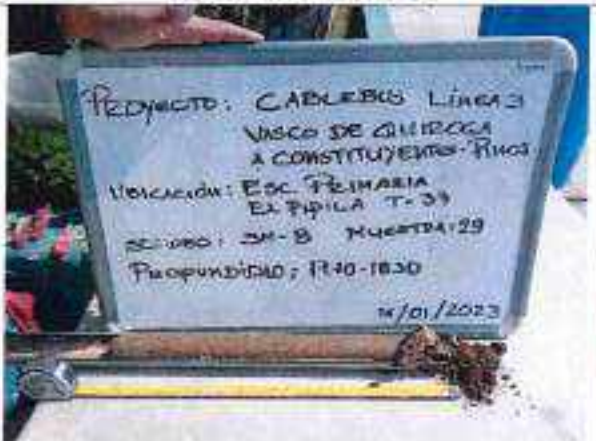 PROYECTO: CABLEBUS LÍNEA 3
VASCO DE QUIROGA
A CONSTITUYENTES-PINOS
UBICACIÓN: ESC. PRIMARIA
EL PIPILA T-39
SONDEO: SM-8 MUESTRA: 29
PROFUNDIDAD:
/01/2023